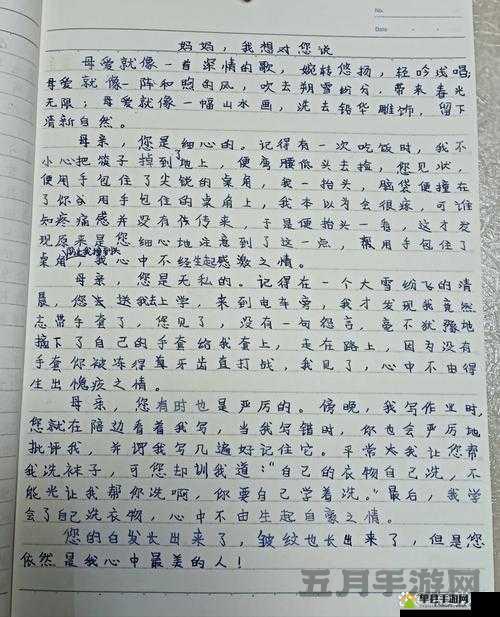 No.
Date
妈妈,我想对您说
母爱就像一首深情的歌,婉转悠扬,轻吟浅唱;
母爱就像一阵和煦的风,吹去朔雪纷分,带来春光
无限;母爱就像一幅山水画,洗去铅华雕饰,留下
清新自然。
母亲,您是细心的。记得有一次吃饭时,我不
小心把筷子掉到了地上,便弯腰低头去捡,您见状,
便用手包住了尖锐的桌角,我一抬头,脑袋便撞在
了你用手包住的桌角上,我本以为会很疼,可谁
知疼痛感并没有传来,于是便抬头一看,这才发
现原来是您细心地注意到了这一点,帮用手包住了
桌角,我心中不经生起感激之情。
母亲,您是无私的。记得在一个大雪纷飞的清
晨,您送我去上学,来到电车旁,我才发现我竟然
忘带手套了,您见了,没有一句怨言,毫不犹豫地
摘下了自己的手套给我套上,走在路上,因为没有
手套你被冻得牙齿直打战,我见了,心中不由得
生出愧疚之情。
母亲,您有时也是严厉的。傍晚,我写作业时,
您就在陪边看着我写,当我写错时,你也会严厉地
批评我,并谓我写几遍好记住它。平常太我让您帮
我洗袜子,可您却训我道:“自己的衣物自己洗,不
能光让我帮你洗啊,你要自己学着洗。”最后,我学
会了自己洗衣物,心中不由生起自豪之情。
您的白发长出来了,皱纹也长出来了,但是您
依然是我心中最美的人!
五月手游网
单县手游网